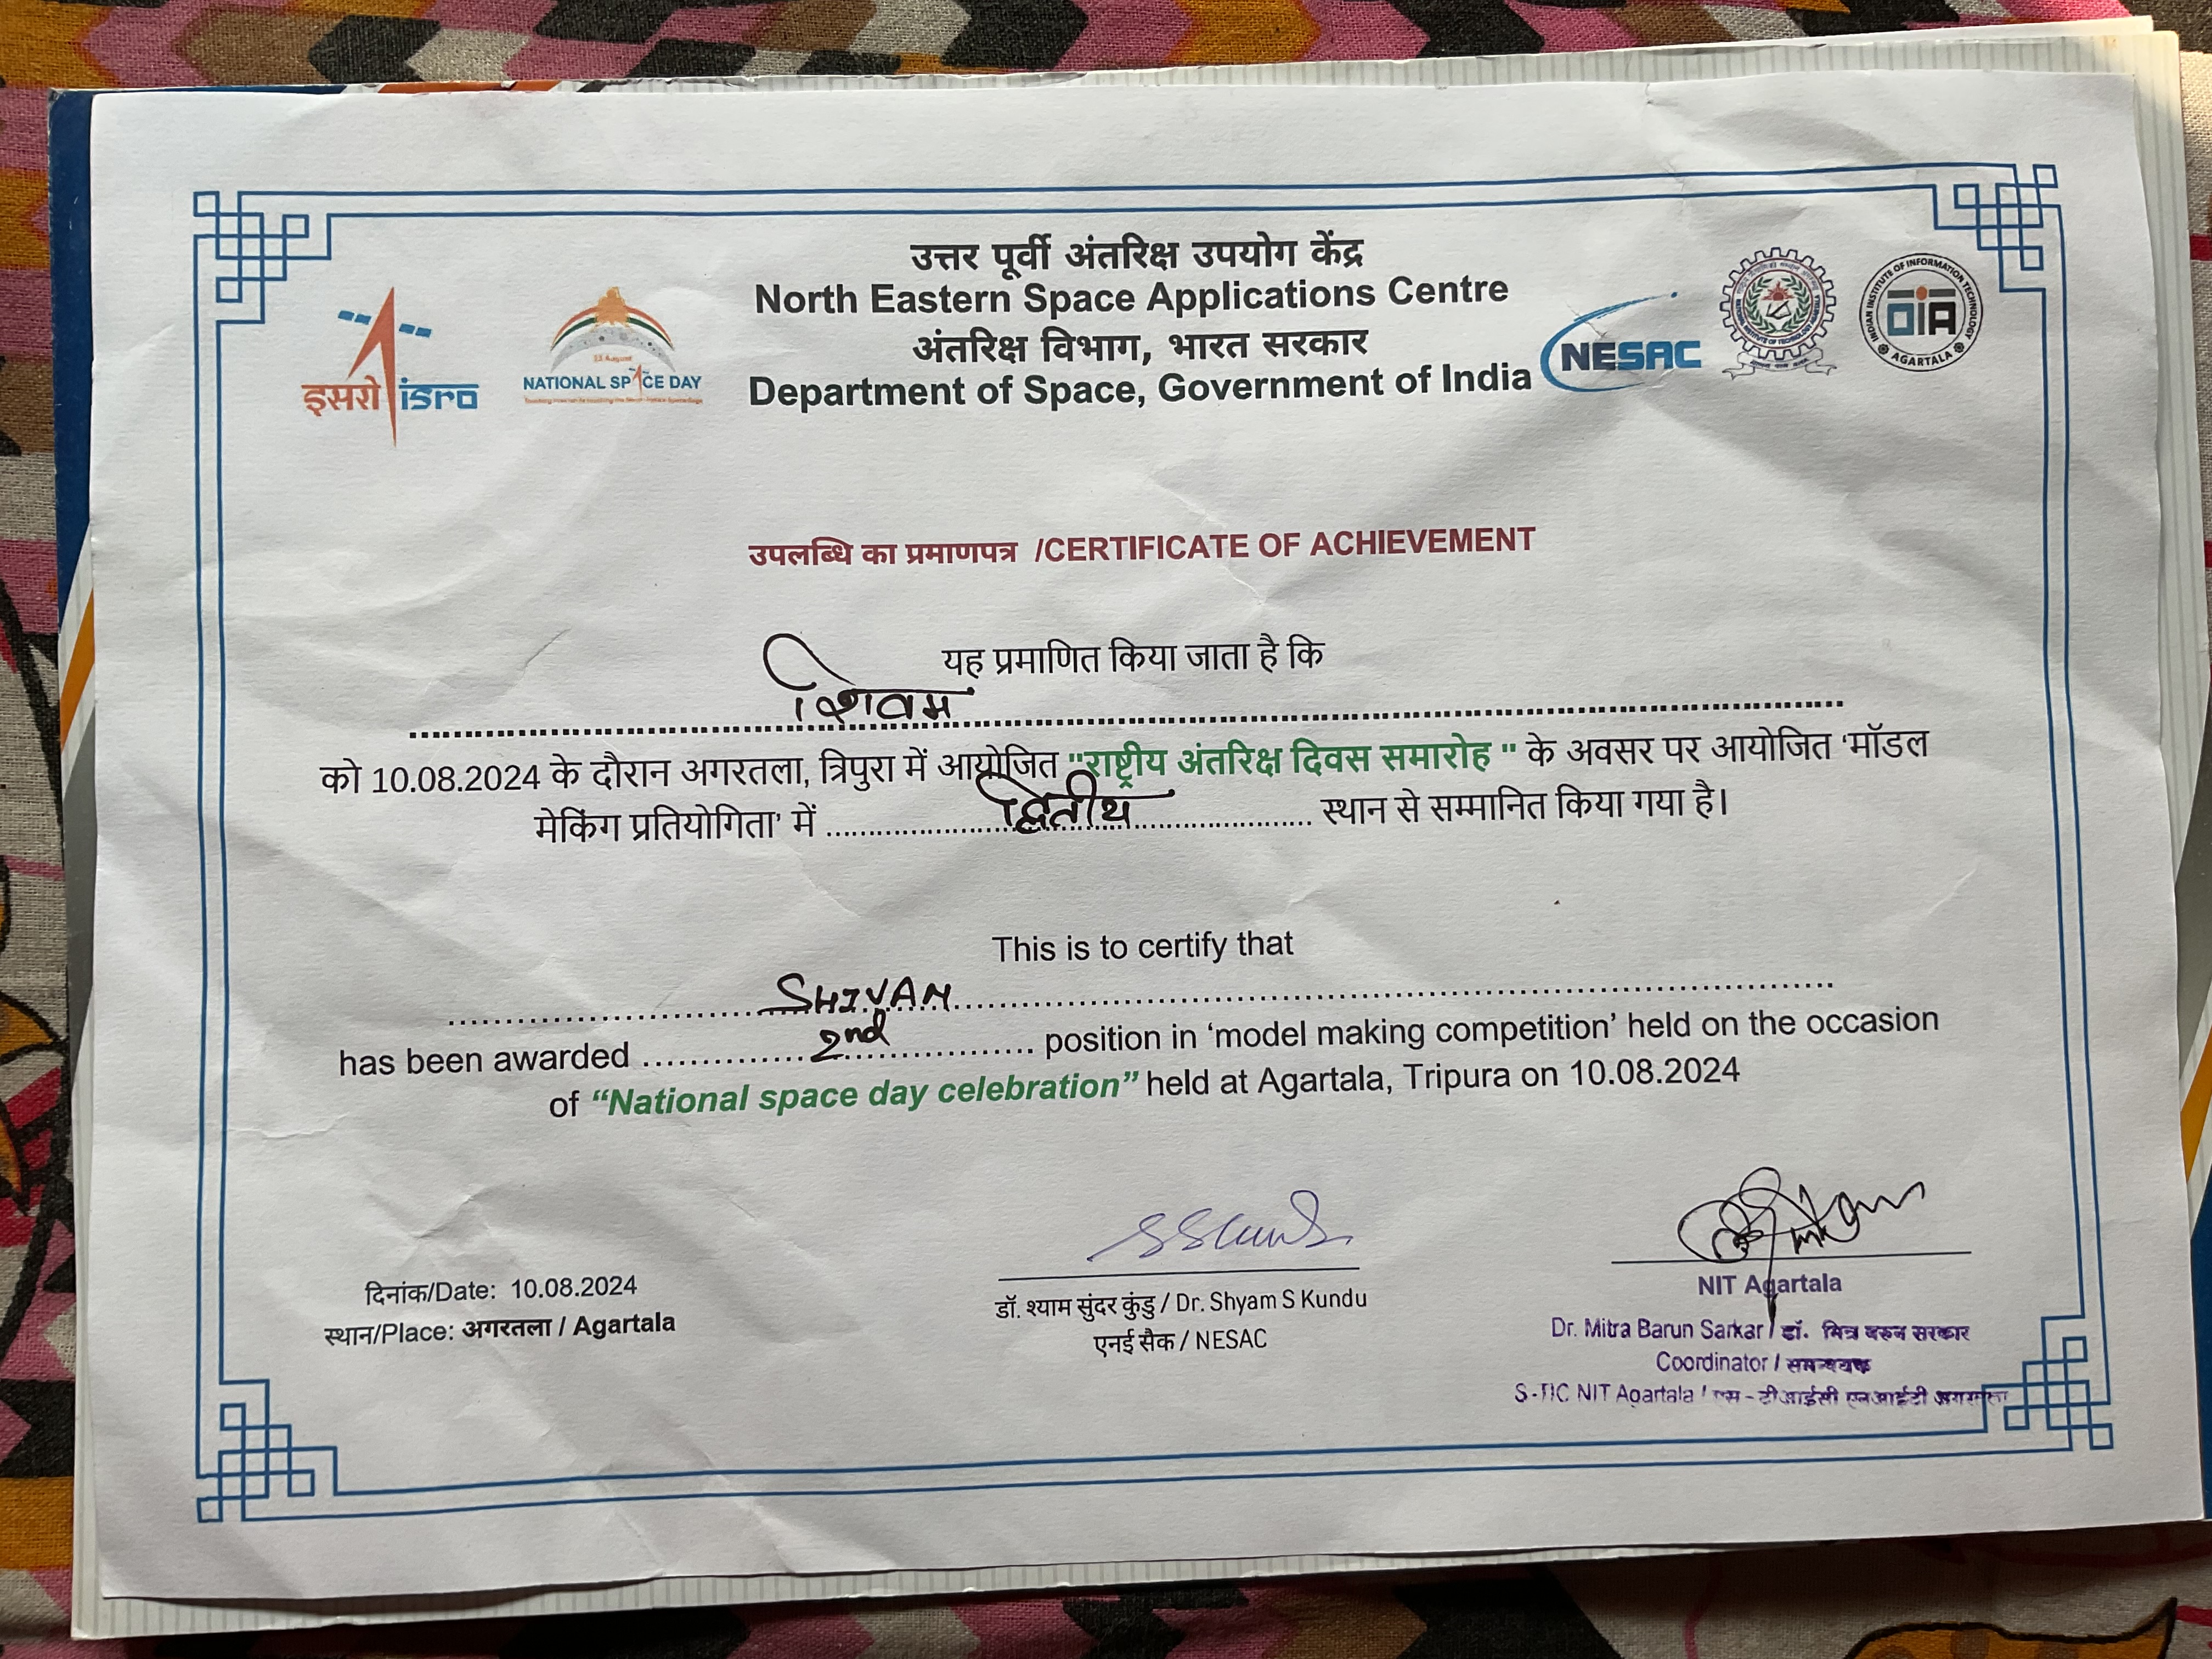 उत्तर पूर्वी अंतरिक्ष उपयोग केंद्र
North Eastern Space Applications Centre
अंतरिक्ष विभाग, भारत सरकार
Department of Space, Government of India
इसरो isro
23 August
NATIONAL SPACE DAY
NESAC
INDIAN INSTITUTE OF INFORMATION TECHNOLOGY
AGARTALA
उपलब्धि का प्रमाणपत्र /CERTIFICATE OF ACHIEVEMENT
यह प्रमाणित किया जाता है कि
शिवम
को 10.08.2024 के दौरान अगरतला, त्रिपुरा में आयोजित "राष्ट्रीय अंतरिक्ष दिवस समारोह " के अवसर पर आयोजित ‘मॉडल
मेकिंग प्रतियोगिता’ में द्वितीय स्थान से सम्मानित किया गया है।
This is to certify that
SHIVAM
has been awarded 2nd position in ‘model making competition’ held on the occasion
of “National space day celebration” held at Agartala, Tripura on 10.08.2024
दिनांक/Date: 10.08.2024
स्थान/Place: अगरतला / Agartala
डॉ. श्याम सुंदर कुंडु / Dr. Shyam S Kundu
एनई सैक / NESAC
NIT Agartala
Dr. Mitra Barun Sarkar / डॉ. मित्र बरुन सरकार
Coordinator / समन्वयक
S-TIC NIT Agartala / एस - टीआईसी एनआईटी अगरतला